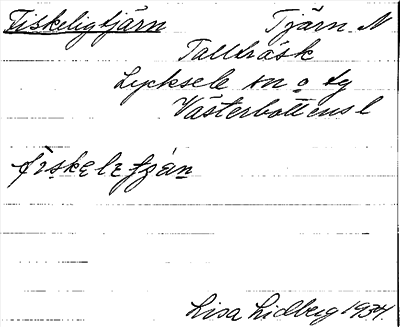 Fiskeligtjärn Tjärn. N
Tallträsk
Lycksele sn o tg
Västerbottens l
fiskeletjän
Lisa Lidberg 1934.